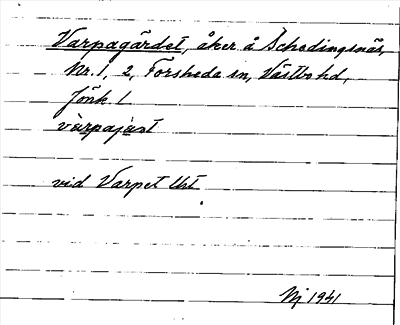 Varpagärdet, åker å Schedingsnäs,
Nr. 1, 2, Forsheda sn, Västbo hd,
Jönk. l
varpajæst
vid Varpet
Nj 1941